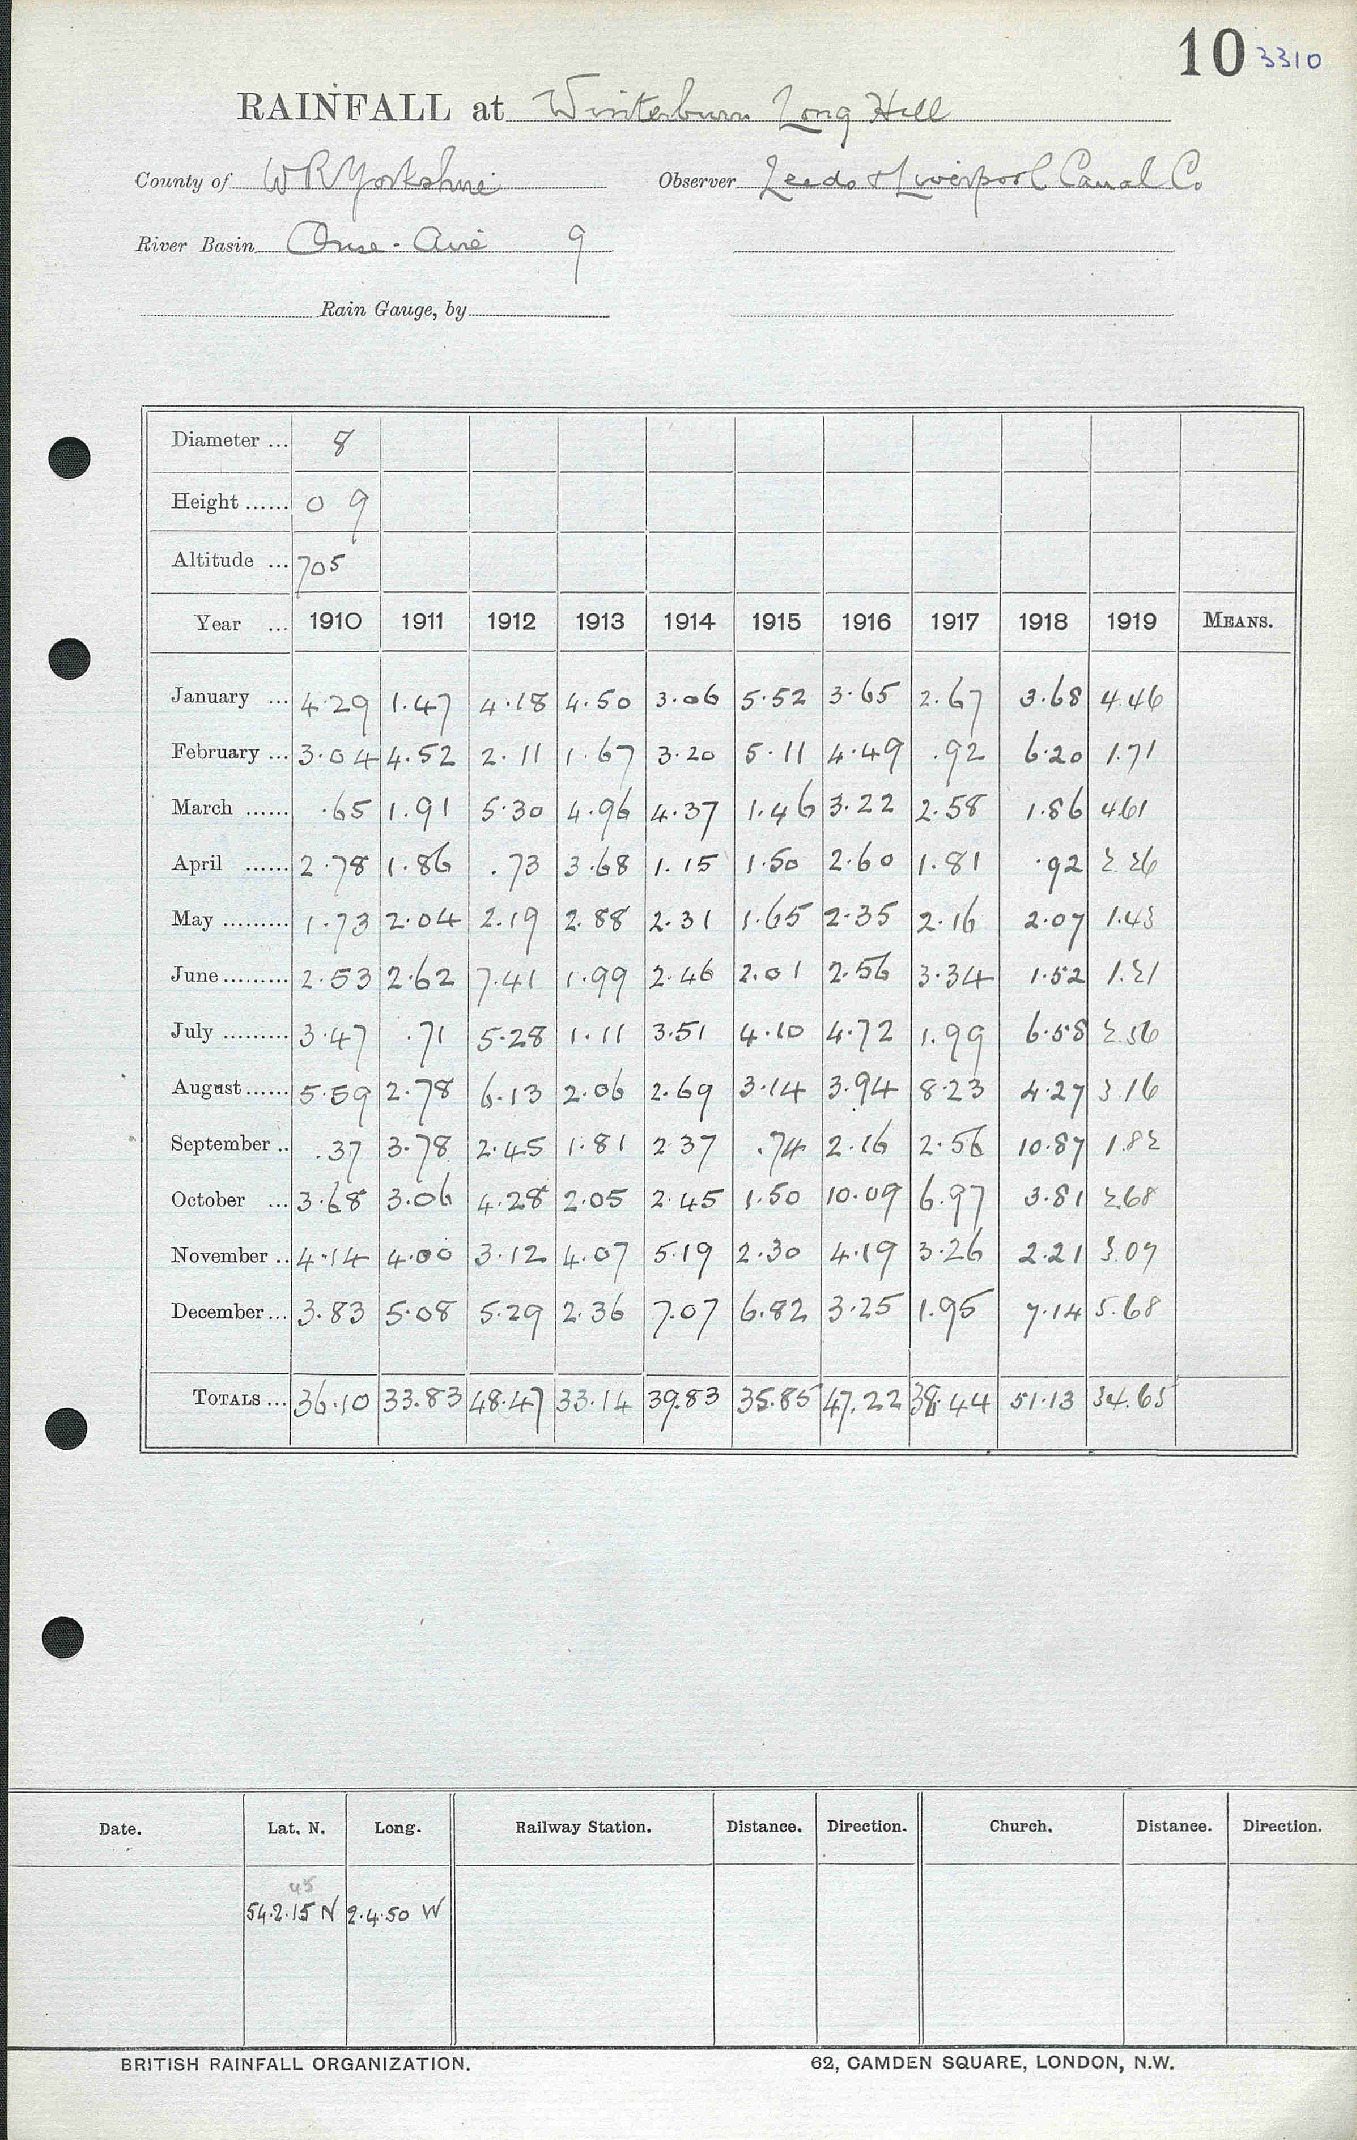 10 3310
RAINFALL at Winterburn Long Hill
County of W R Yorkshire Observer Leeds & Liverpool Canal Co
River Basin Ouse - Aire 9
Rain Gauge, by
Diameter ... 8
Height ...... 0 9
Altitude ... 705
Year ... 1910 1911 1912 1913 1914 1915 1916 1917 1918 1919 MEANS.
January ... 4.29 1.47 4.18 4.50 3.06 5.52 3.65 2.67 3.68 4.46
February ... 3.04 4.52 2.11 1.67 3.20 5.11 4.49 .92 6.20 1.71
March ...... .65 1.91 5.30 4.96 4.37 1.46 3.22 2.58 1.86 4.61
April ...... 2.78 1.86 .73 3.68 1.15 1.50 2.60 1.81 .92 2.26
May ......... 1.73 2.04 2.19 2.88 2.31 1.65 2.35 2.16 2.07 1.43
June ......... 2.53 2.62 7.41 1.99 2.46 2.01 2.56 3.34 1.52 1.21
July ......... 3.47 .71 5.28 1.11 3.51 4.10 4.72 1.99 6.58 2.56
August ...... 5.59 2.78 6.13 2.06 2.69 3.14 3.94 8.23 4.27 3.16
September .. .37 3.78 2.45 1.81 2.37 .74 2.16 2.56 10.87 1.82
October ... 3.68 3.06 4.28 2.05 2.45 1.50 10.09 6.97 3.81 2.68
November .. 4.14 4.00 3.12 4.07 5.19 2.30 4.19 3.26 2.21 3.07
December ... 3.83 5.08 5.29 2.36 7.07 6.82 3.25 1.95 7.14 5.68
TOTALS ... 36.10 33.83 48.47 33.14 39.83 35.85 47.22 38.44 51.13 34.65
Date. Lat. N. Long. Railway Station. Distance. Direction. Church. Distance. Direction.
45
54.2.15 N 2.4.50 W
BRITISH RAINFALL ORGANIZATION. 62, CAMDEN SQUARE, LONDON, N.W.